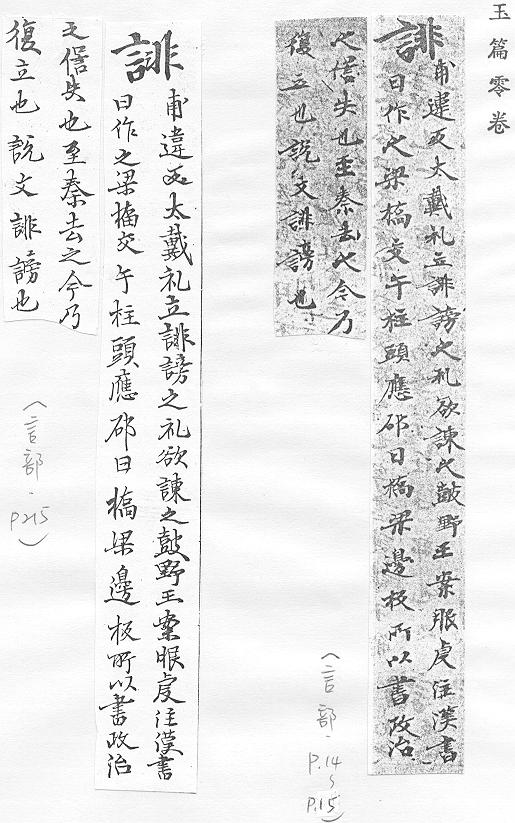 玉篇零卷
誹
甫違反太戴礼立誹謗之礼欲諫之鼓野王案服虔注漢書
曰作之梁橋交午柱頭應邵曰橋梁邊板所以書政治
之僁失也至秦去之今乃
復立也說文誹謗也
(言部.
P.14
~
P.15)
誹
甫違反太戴礼立誹謗之礼欲諫之鼓野王案服虔注漢書
曰作之梁橋交午柱頭應邵曰橋梁邊板所以書政治
之僁失也至秦去之今乃
復立也說文誹謗也
(言部.
P215)